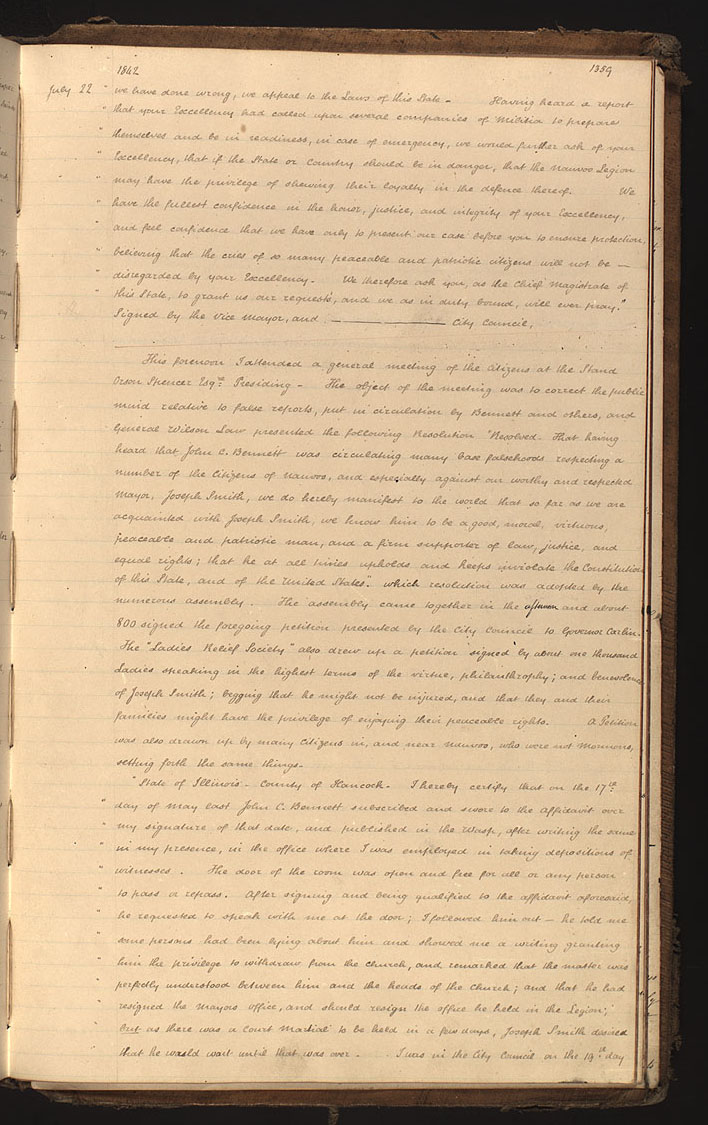 1842 1359
July 22 " we have done wrong, we appeal to the Laws of this State - Having heard a report
" that your Excellency had called upon several companies of Militia to prepare
" themselves and be in readiness, in case of emergency, we would further ask of your
" Excellency, that if the State or Country should be in danger, that the Nauvoo Legion
" may have the privilege of shewing their loyalty in the defence thereof. We
" have the fullest confidence in the honor, justice, and integrity of your Excellency,
" and feel confidence that we have only to present our case before you to ensure protection,
" believing that the cries of so many peaceable and patriotic citizens will not be —
" disregarded by your Excellency. We therefore ask you, as the Chief Magistrate of
" this State, to grant us our requests, and we as in duty bound, will ever pray."
Signed by the Vice Mayor, and ———— City Council,
This forenoon I attended a general meeting of the Citizens at the Stand
Orson Spencer Esqre. Presiding - The object of the meeting was to correct the public
mind relative to false reports, put in circulation by Bennett and others, and
General Wilson Law presented the following Resolution "Resolved. That having
heard that John C. Bennett was circulating many base falsehoods respecting a
number of the Citizens of Nauvoo, and especially against our worthy and respected
Mayor, Joseph Smith, we do hereby manifest to the world that so far as we are
acquainted with Joseph Smith, we know him to be a good, moral, virtuous,
peaceable and patriotic man, and a firm supporter of law, justice, and
equal rights; that he at all times upholds and keeps inviolate the Constitution
of this State, and of the United States". which resolution was adopted by the
numerous assembly. The assembly came together in the afternoon and about
800 signed the foregoing petition presented by the City Council to Governor Carlin.
The "Ladies Relief Society" also drew up a petition signed by about one thousand
Ladies speaking in the highest terms of the virtue, philanthrophy; and benevolence
of Joseph Smith; begging that he might not be injured, and that they and their
families might have the privilege of enjoying their peaceable rights. A Petition
was also drawn up by many Citizens in, and near Nauvoo, who were not Mormons,
setting forth the same things.-
"State of Illinois - County of Hancock - I hereby certify that on the 17th.
" day of May last John C. Bennett subscribed and swore to the affidavit over
" my signature of that date, and published in the Wasp, after writing the same
" in my presence, in the office where I was employed in taking depositions of
" witnesses. The door of the room was open and free for all or any person
" to pass or repass. After signing and being qualified to the affidavit aforesaid,
" he requested to speak with me at the door; I followed him out - he told me
" some persons had been lying about him and showed me a writing granting
" him the privilege to withdraw from the church, and remarked that the matter was
" perfectly understood between him and the heads of the Church; and that he had
" resigned the Mayors office, and should resign the office he held in the Legion;
" but as there was a Court Martial to be held in a few days, Joseph Smith desired
" that he would wait until that was over - I was in the City Council on the 19th. day